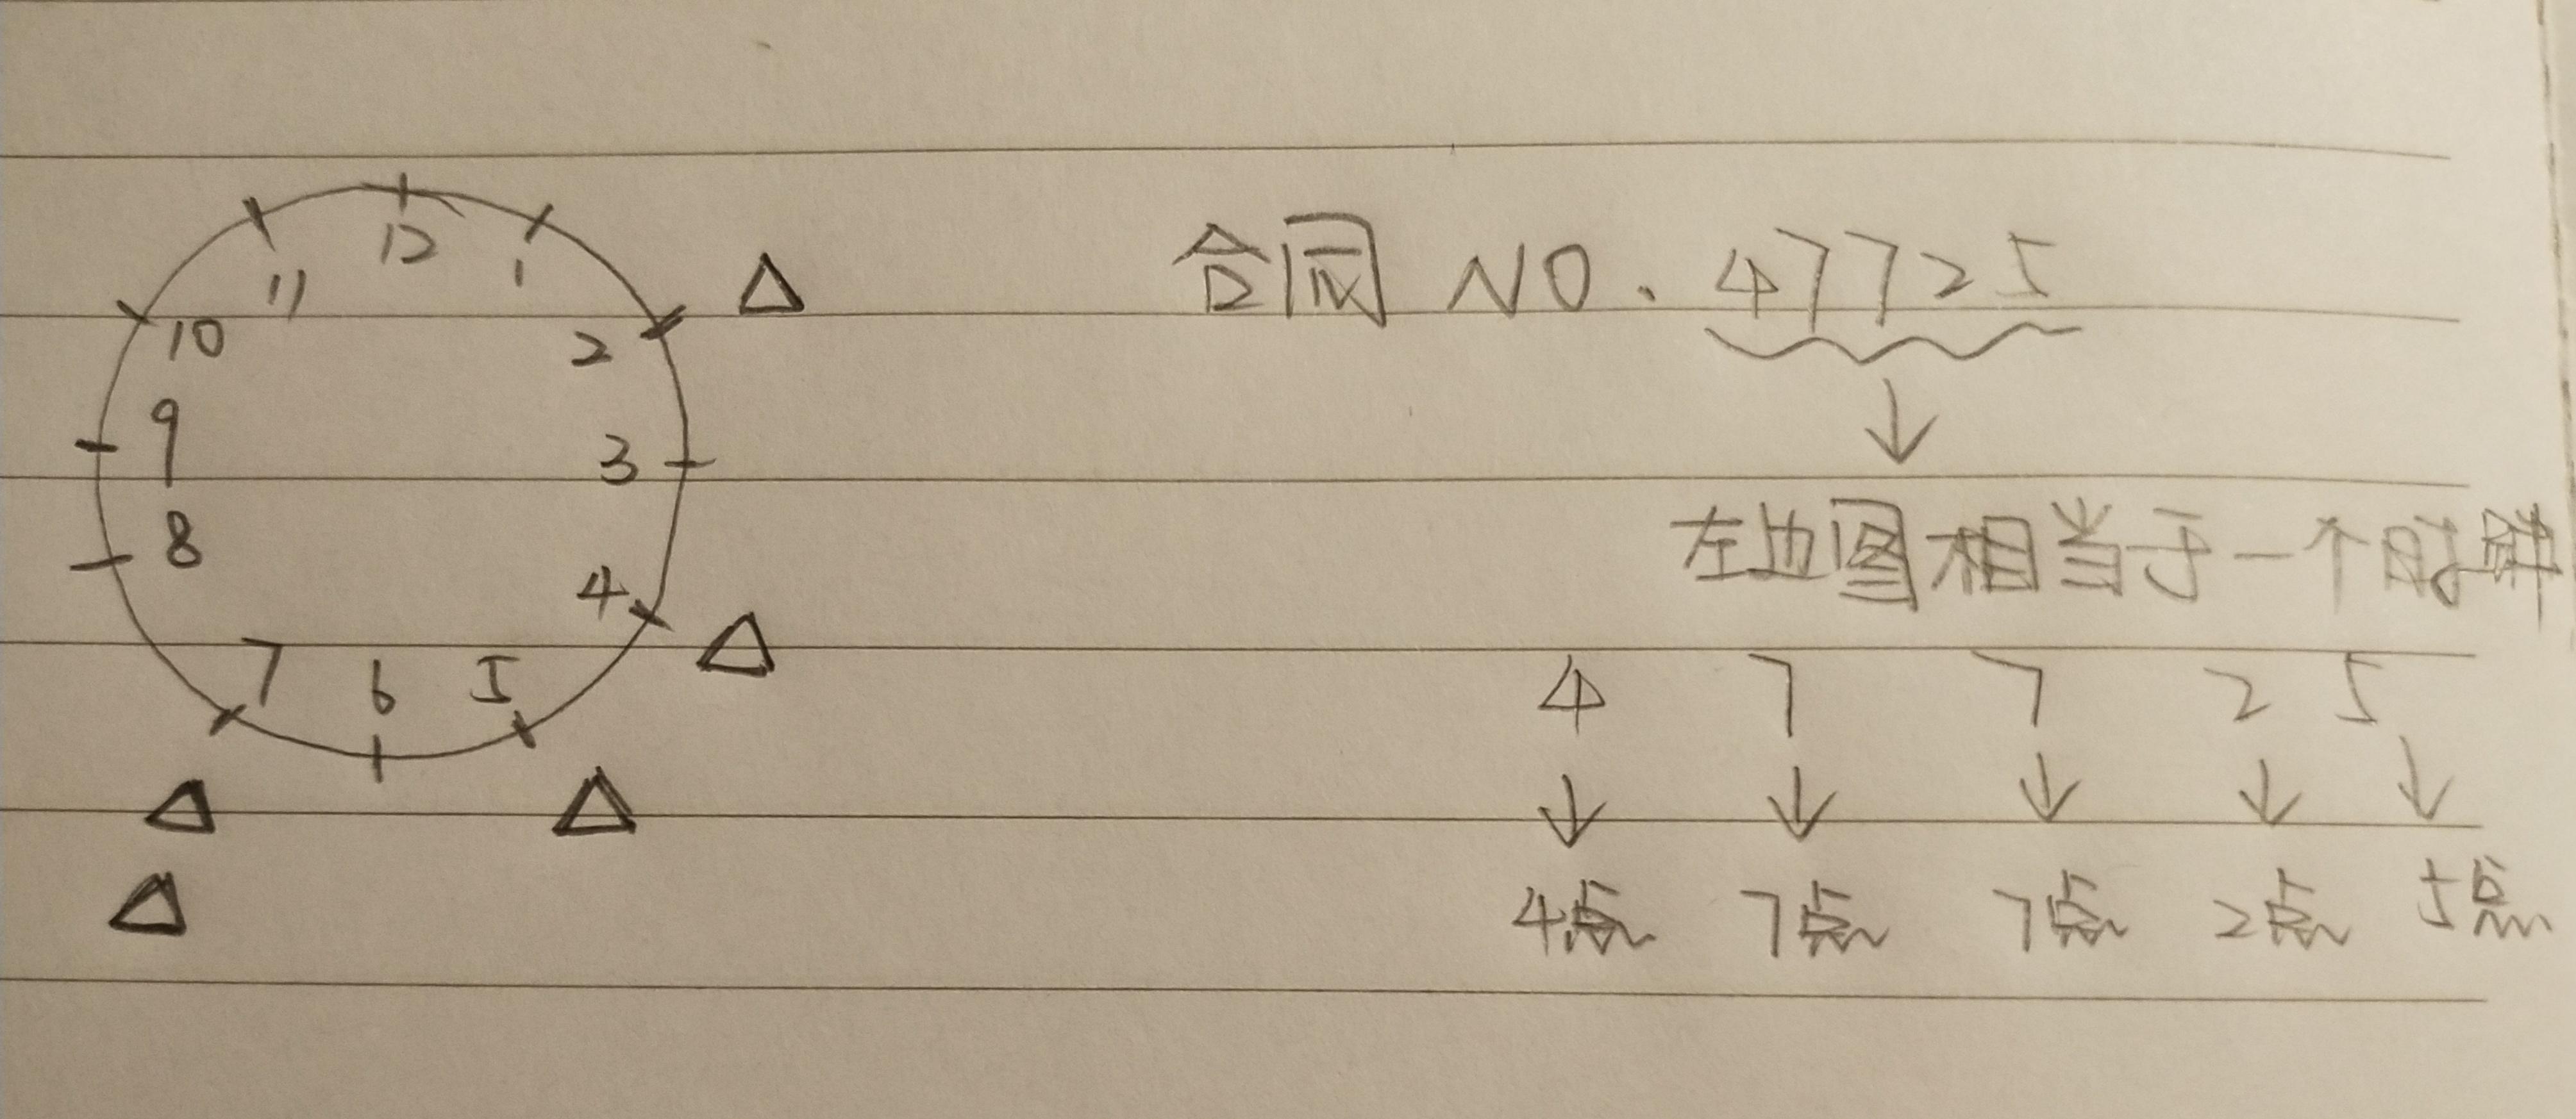 12
11
1
10
2
9
3
8
4
7
6
5
合同 NO. 47725
左边图相当于一个时钟
4 7 7 2 5
4点 7点 7点 2点 5点